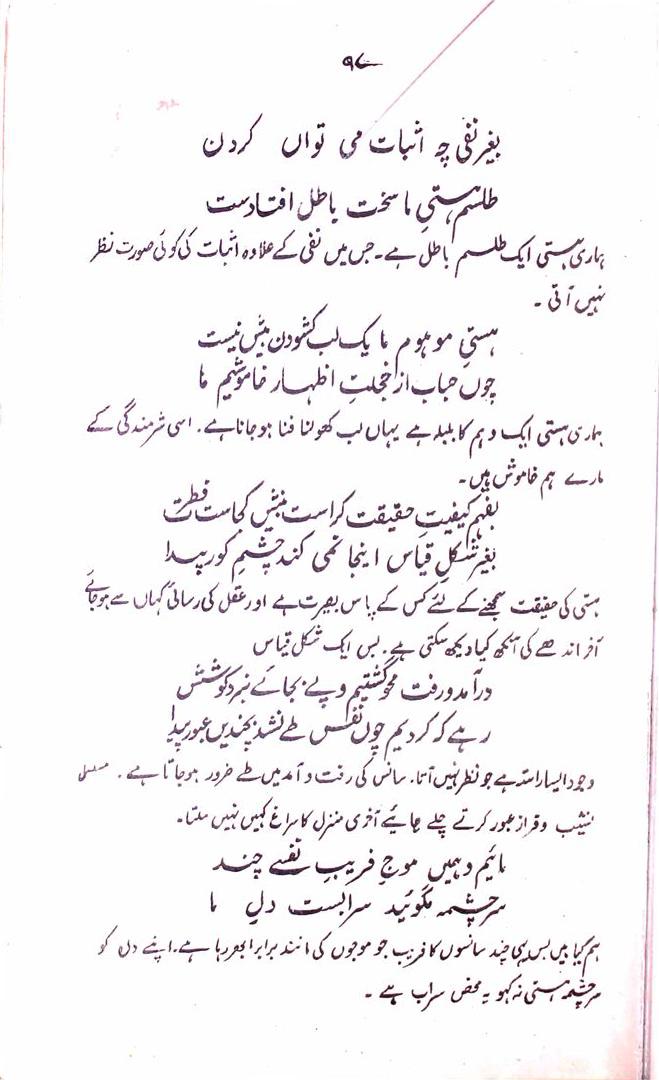 ۹۷
بغیر نفی چہ اثبات می تواں کردن
طلسم ہستیِ ما سخت باطل افتادست
ہماری ہستی ایک طلسم باطل ہے۔ جس میں نفی کے علاوہ اثبات کی کوئی صورت نظر
نہیں آتی ۔
ہستیِ موہوم ما یک لب کشودن بیش نیست
چوں حباب از خجلتِ اظہار خاموشیم ما
ہماری ہستی ایک وہم کا بلبلہ ہے یہاں لب کھولنا فنا ہو جانا ہے۔ اسی شرمندگی کے
مارے ہم خاموش ہیں۔
بفہم کیفیتِ حقیقت کراست بینش کجاست فطرت
بغیر شکلِ قیاس اینجا نمی کند چشمِ کور پیدا
ہستی کی حقیقت سمجھنے کے لئے کس کے پاس بصیرت ہے اور عقل کی رسائی کہاں سے ہو جائے
آخر اندھے کی آنکھ کیا دیکھ سکتی ہے۔ بس ایک شکل قیاس
در آمد و رفت محو گشتیم و پے بجائے نبرد کوشش
رہے کہ کردیم چوں نفس طے نشد بچندیں عبور پیدا
وجود ایسا راستہ ہے جو نظر نہیں آتا۔ سانس کی رفت و آمد میں طے ضرور ہو جاتا ہے۔ مسلسل
نشیب و فراز عبور کرتے چلے جائیے آخری منزل کا سراغ کہیں نہیں ملتا۔
مائیم و ہمیں موجِ فریبِ نفسے چند
سرچشمہ مگوئید سرابست دلِ ما
ہم کیا ہیں بس یہی چند سانسوں کا فریب جو موجوں کی مانند برابر ابھر رہا ہے۔ اپنے دل کو
سرچشمہ ہستی نہ کہو یہ محض سراب ہے ۔